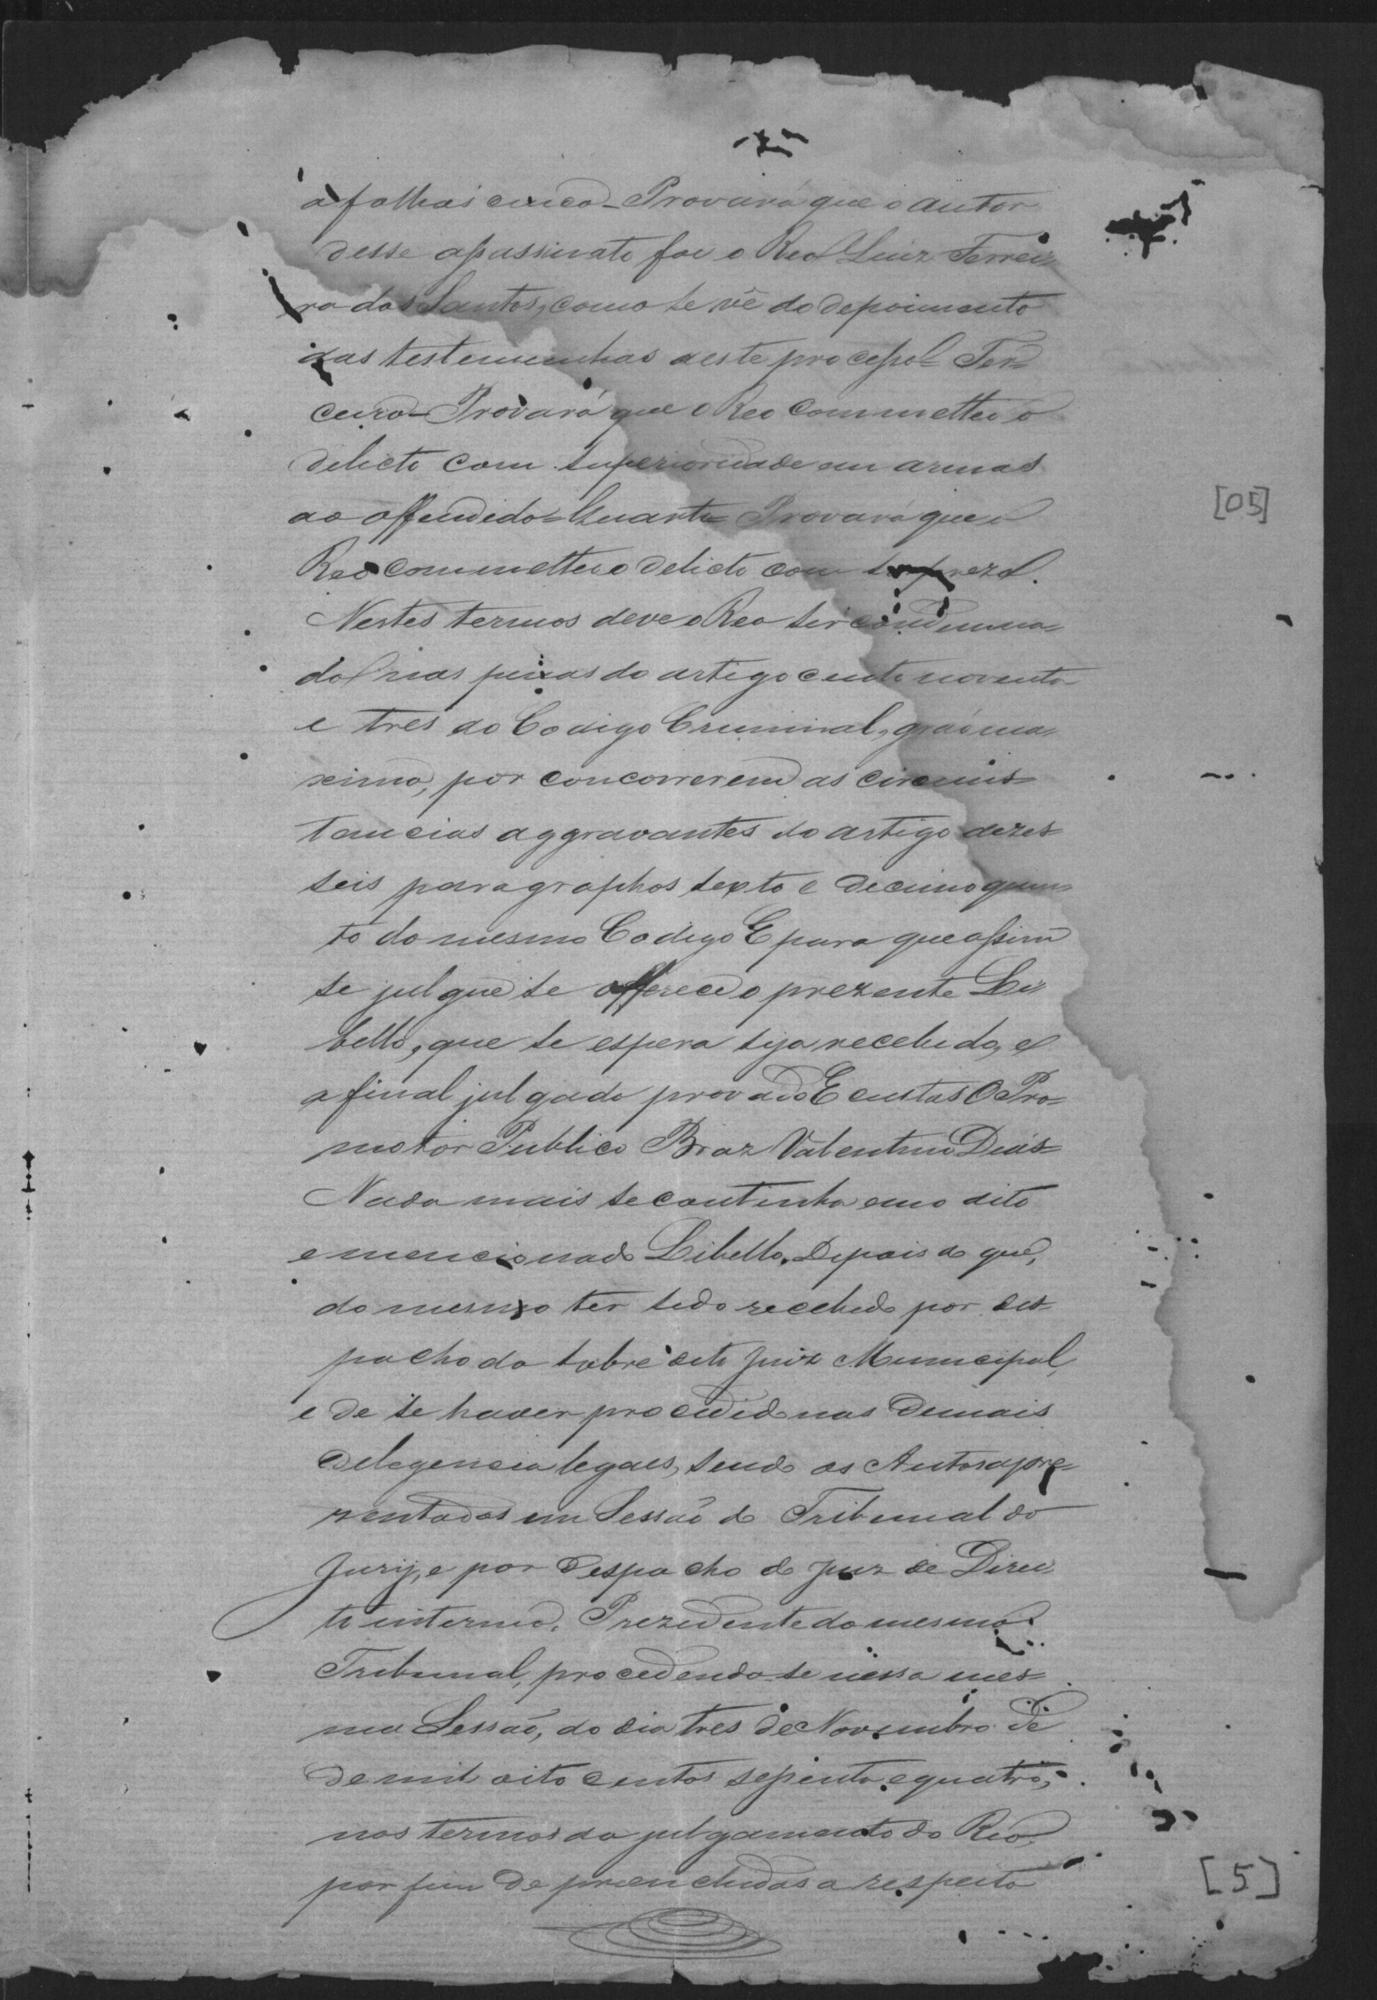 a folhas cinco – Provará que o autor
desse assassinato foi o Reo Luiz Ferrei=
ra dos Santos, como se vê do depoimento
das testemunhas deste processo = Ter=
ceiro – Provará que o Reo commetteo o
delicto com superioridade em armas
ao offendido = Quarto = Provará que o
Reo commetteo o delicto com
Nestes termos deve o Reo ser condemna=
do nas penas do artigo cento noventa
e tres do Codigo Criminal, gráo ma=
ximo, por concorrerem as circuns=
tancias aggravantes do artigo dezes=
seis paragraphos sexto e decimo quin=
to do mesmo Codigo E para que assim
se julgue se offerece o prezente Li=
bello, que se espera seja recebido, e
a final julgado provado E custas O Pro=
motor Publico Braz Valentino Dias =
Nada mais se continha em o dito
e mencionado Libello. Depois do que,
do mesmo ter sido recebido por des=
pacho do sobre dito Juiz Municipal,
e de se haver procedido nas demais
delegencia legaes, sendo os Autos apre=
zentados em Sessão do Tribunal do
Jury, e por despacho do Juiz de Direi
to interino, Prezidente do mesmo
Tribunal, procedendo-se nessa mes=
ma Sessão, do dia tres de Novembro de
de mil oito centos setenta e quatro,
nos termos do julgamento do Reo
por fim de preenchidas a respeito
[05]
[5]